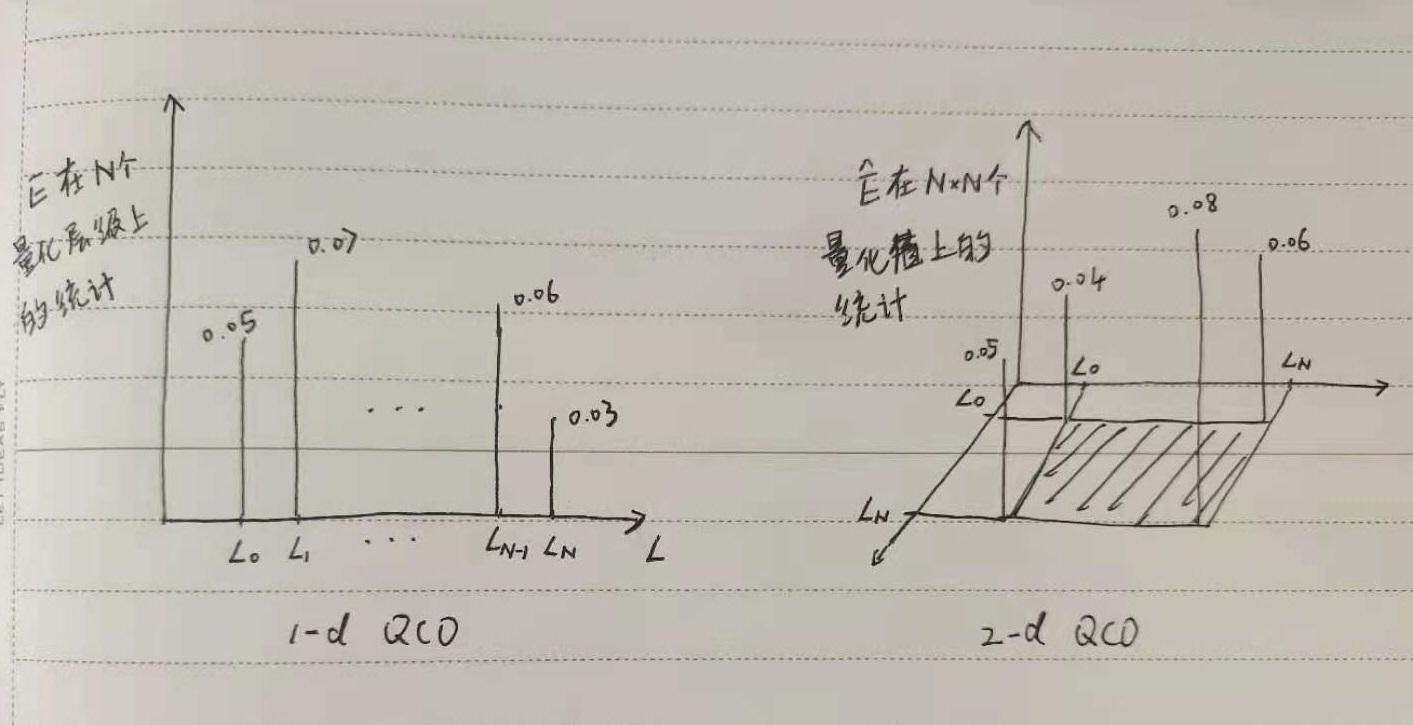 Ê 在 N个
量化层级上
的统计
0.05
0.07
...
0.06
0.03
L₀ L₁ ... L_{N-1} L_N L
1-d QCO
Ê 在 N×N个
量化值上的
统计
0.05
0.04
0.08
0.06
L₀
L₀
L_N
L_N
2-d QCO